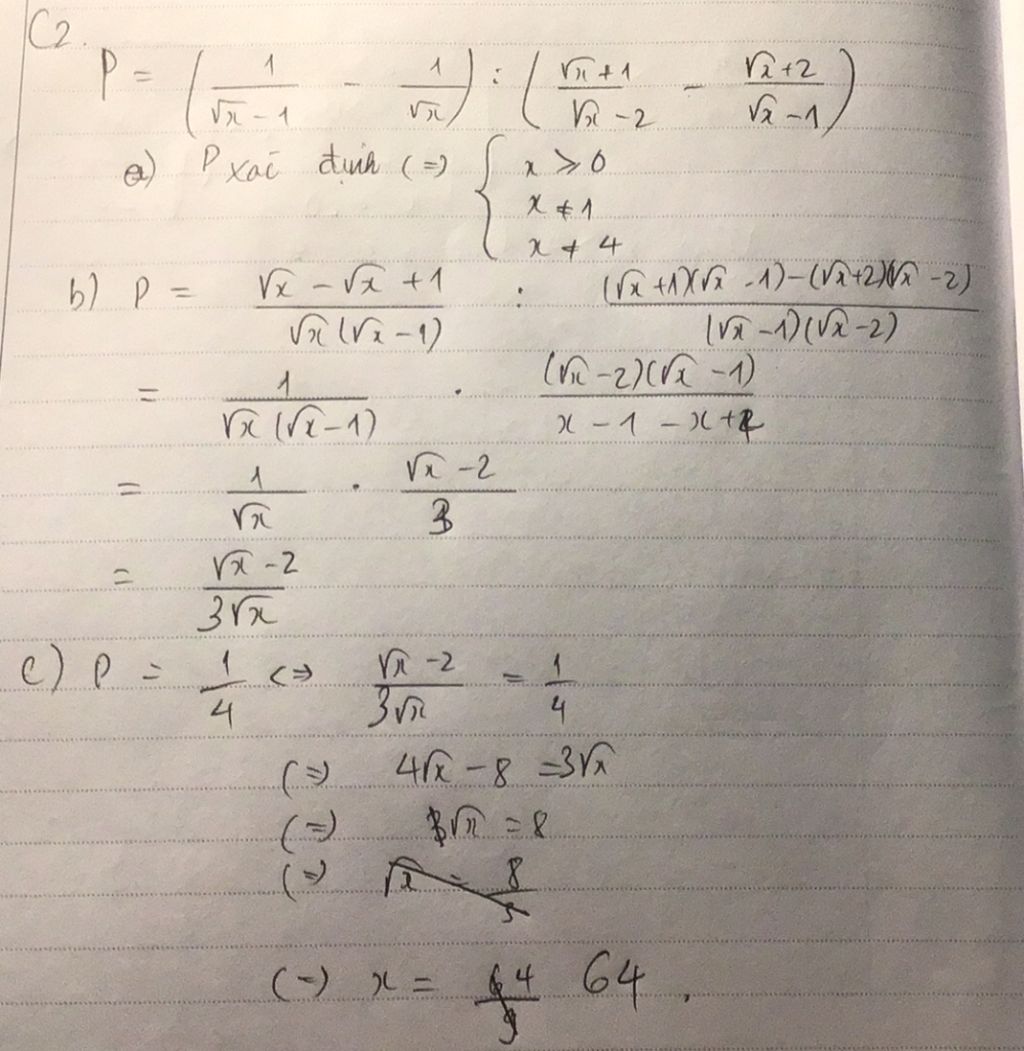 C2.
P = (1/(√x - 1) - 1/√x) : ((√x + 1)/(√x - 2) - (√x + 2)/(√x - 1))
a) P xác định (=) { x > 0
x ≠ 1
x ≠ 4
b) P = (√x - √x + 1)/(√x(√x - 1)) : ((√x + 1)(√x - 1) - (√x + 2)(√x - 2))/((√x - 1)(√x - 2))
= 1/(√x(√x - 1)) . ((√x - 2)(√x - 1))/(x - 1 - x + 4)
= 1/√x . (√x - 2)/3
= (√x - 2)/(3√x)
c) P = 1/4 <=> (√x - 2)/(3√x) = 1/4
(=) 4√x - 8 = 3√x
(=) √x = 8
(=) √x = 8/5
(=) x = 64/9 64.